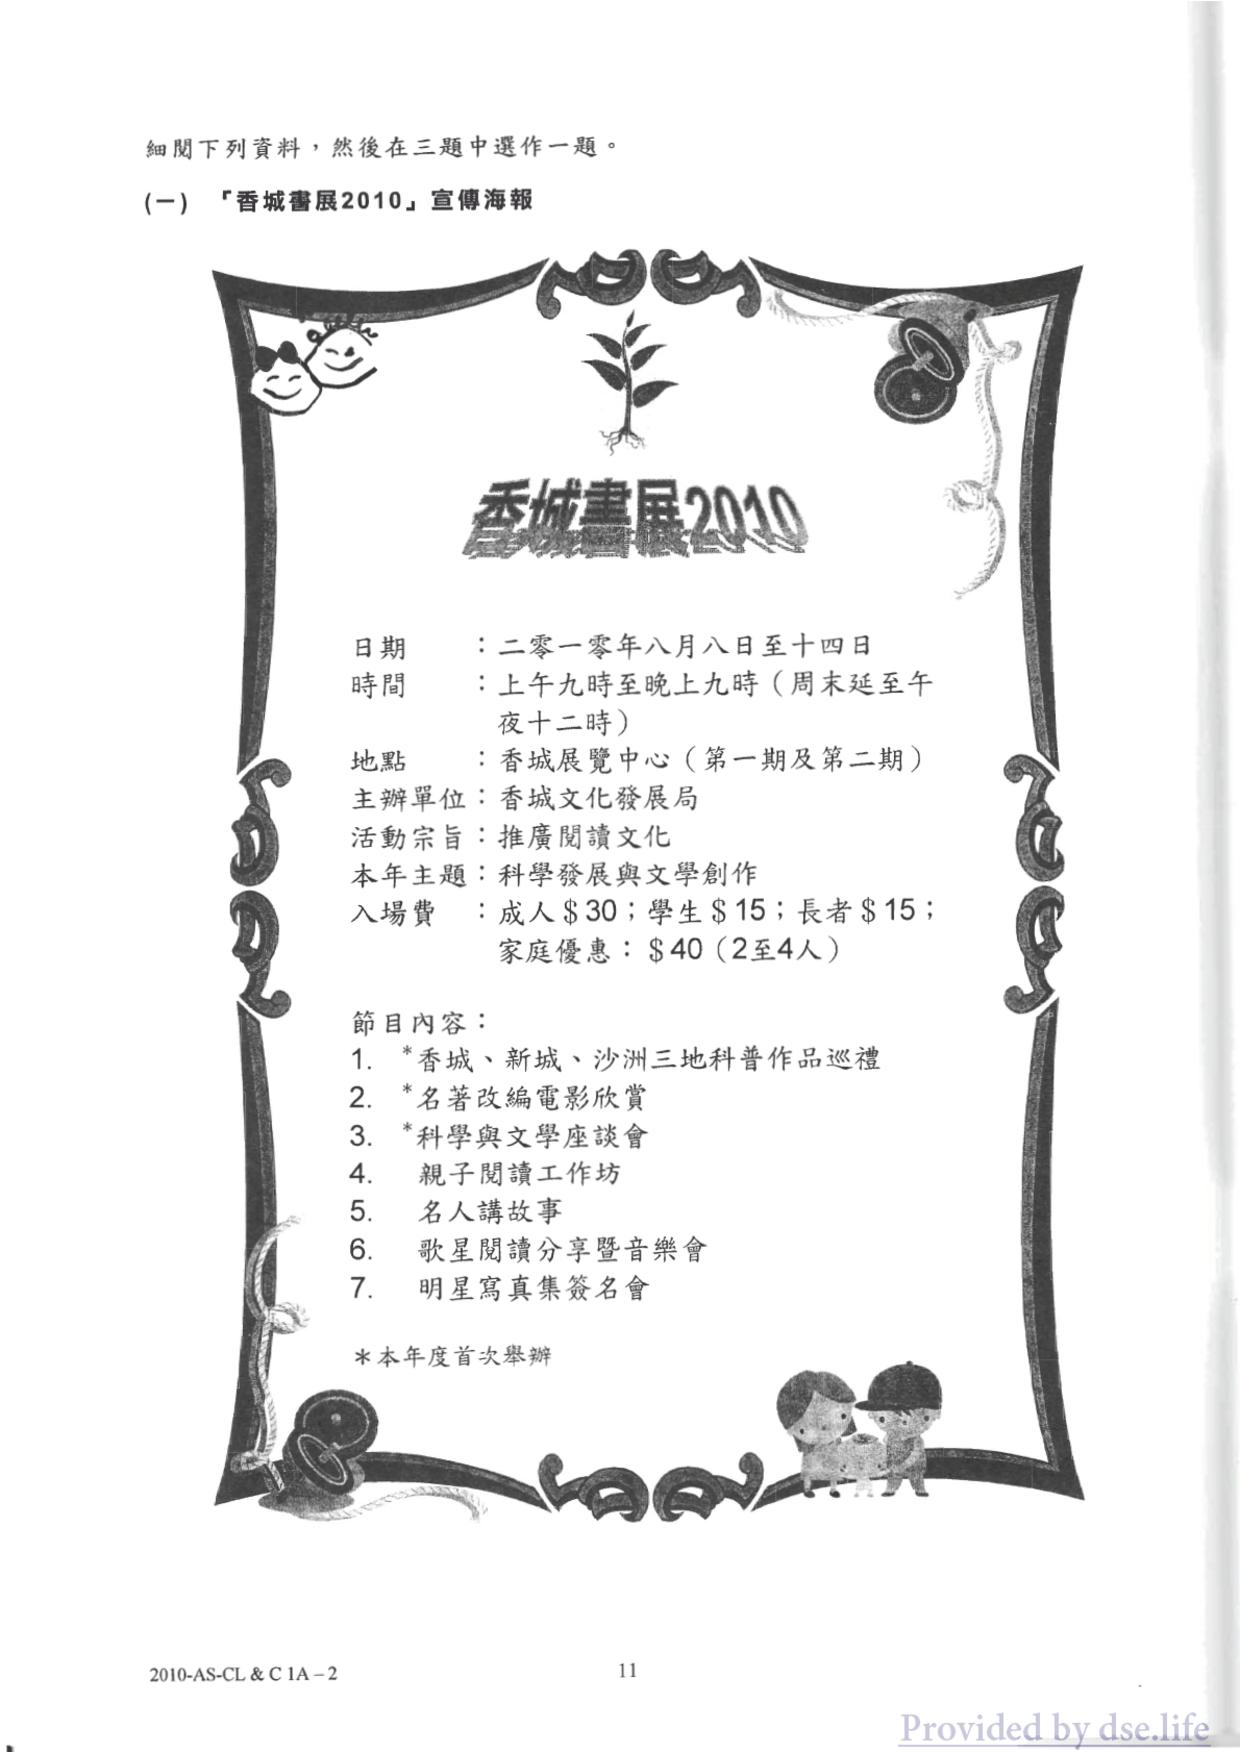 細閱下列資料，然後在三題中選作一題。
(一) 「香城書展2010」宣傳海報
香城書展2010
日期 ：二零一零年八月八日至十四日
時間 ：上午九時至晚上九時（周末延至午
夜十二時）
地點 ：香城展覽中心（第一期及第二期）
主辦單位：香城文化發展局
活動宗旨：推廣閱讀文化
本年主題：科學發展與文學創作
入場費 ：成人＄30；學生＄15；長者＄15；
家庭優惠：＄40（2至4人）
節目內容：
1. *香城、新城、沙洲三地科普作品巡禮
2. *名著改編電影欣賞
3. *科學與文學座談會
4. 親子閱讀工作坊
5. 名人講故事
6. 歌星閱讀分享暨音樂會
7. 明星寫真集簽名會
＊本年度首次舉辦
2010-AS-CL & C 1A – 2
11
Provided by dse.life